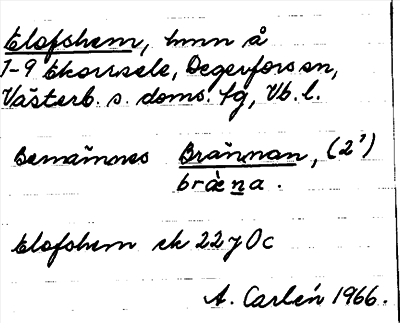 Elofshem, hmn å
1-9 Ekorrsele, Degerfors sn,
Västerb. s. doms. tg, Vb. l.
Benämnes Brännan, (2')
brä̀n̲a.
Elofshem ek 22 J 0c
A. Carlén 1966.